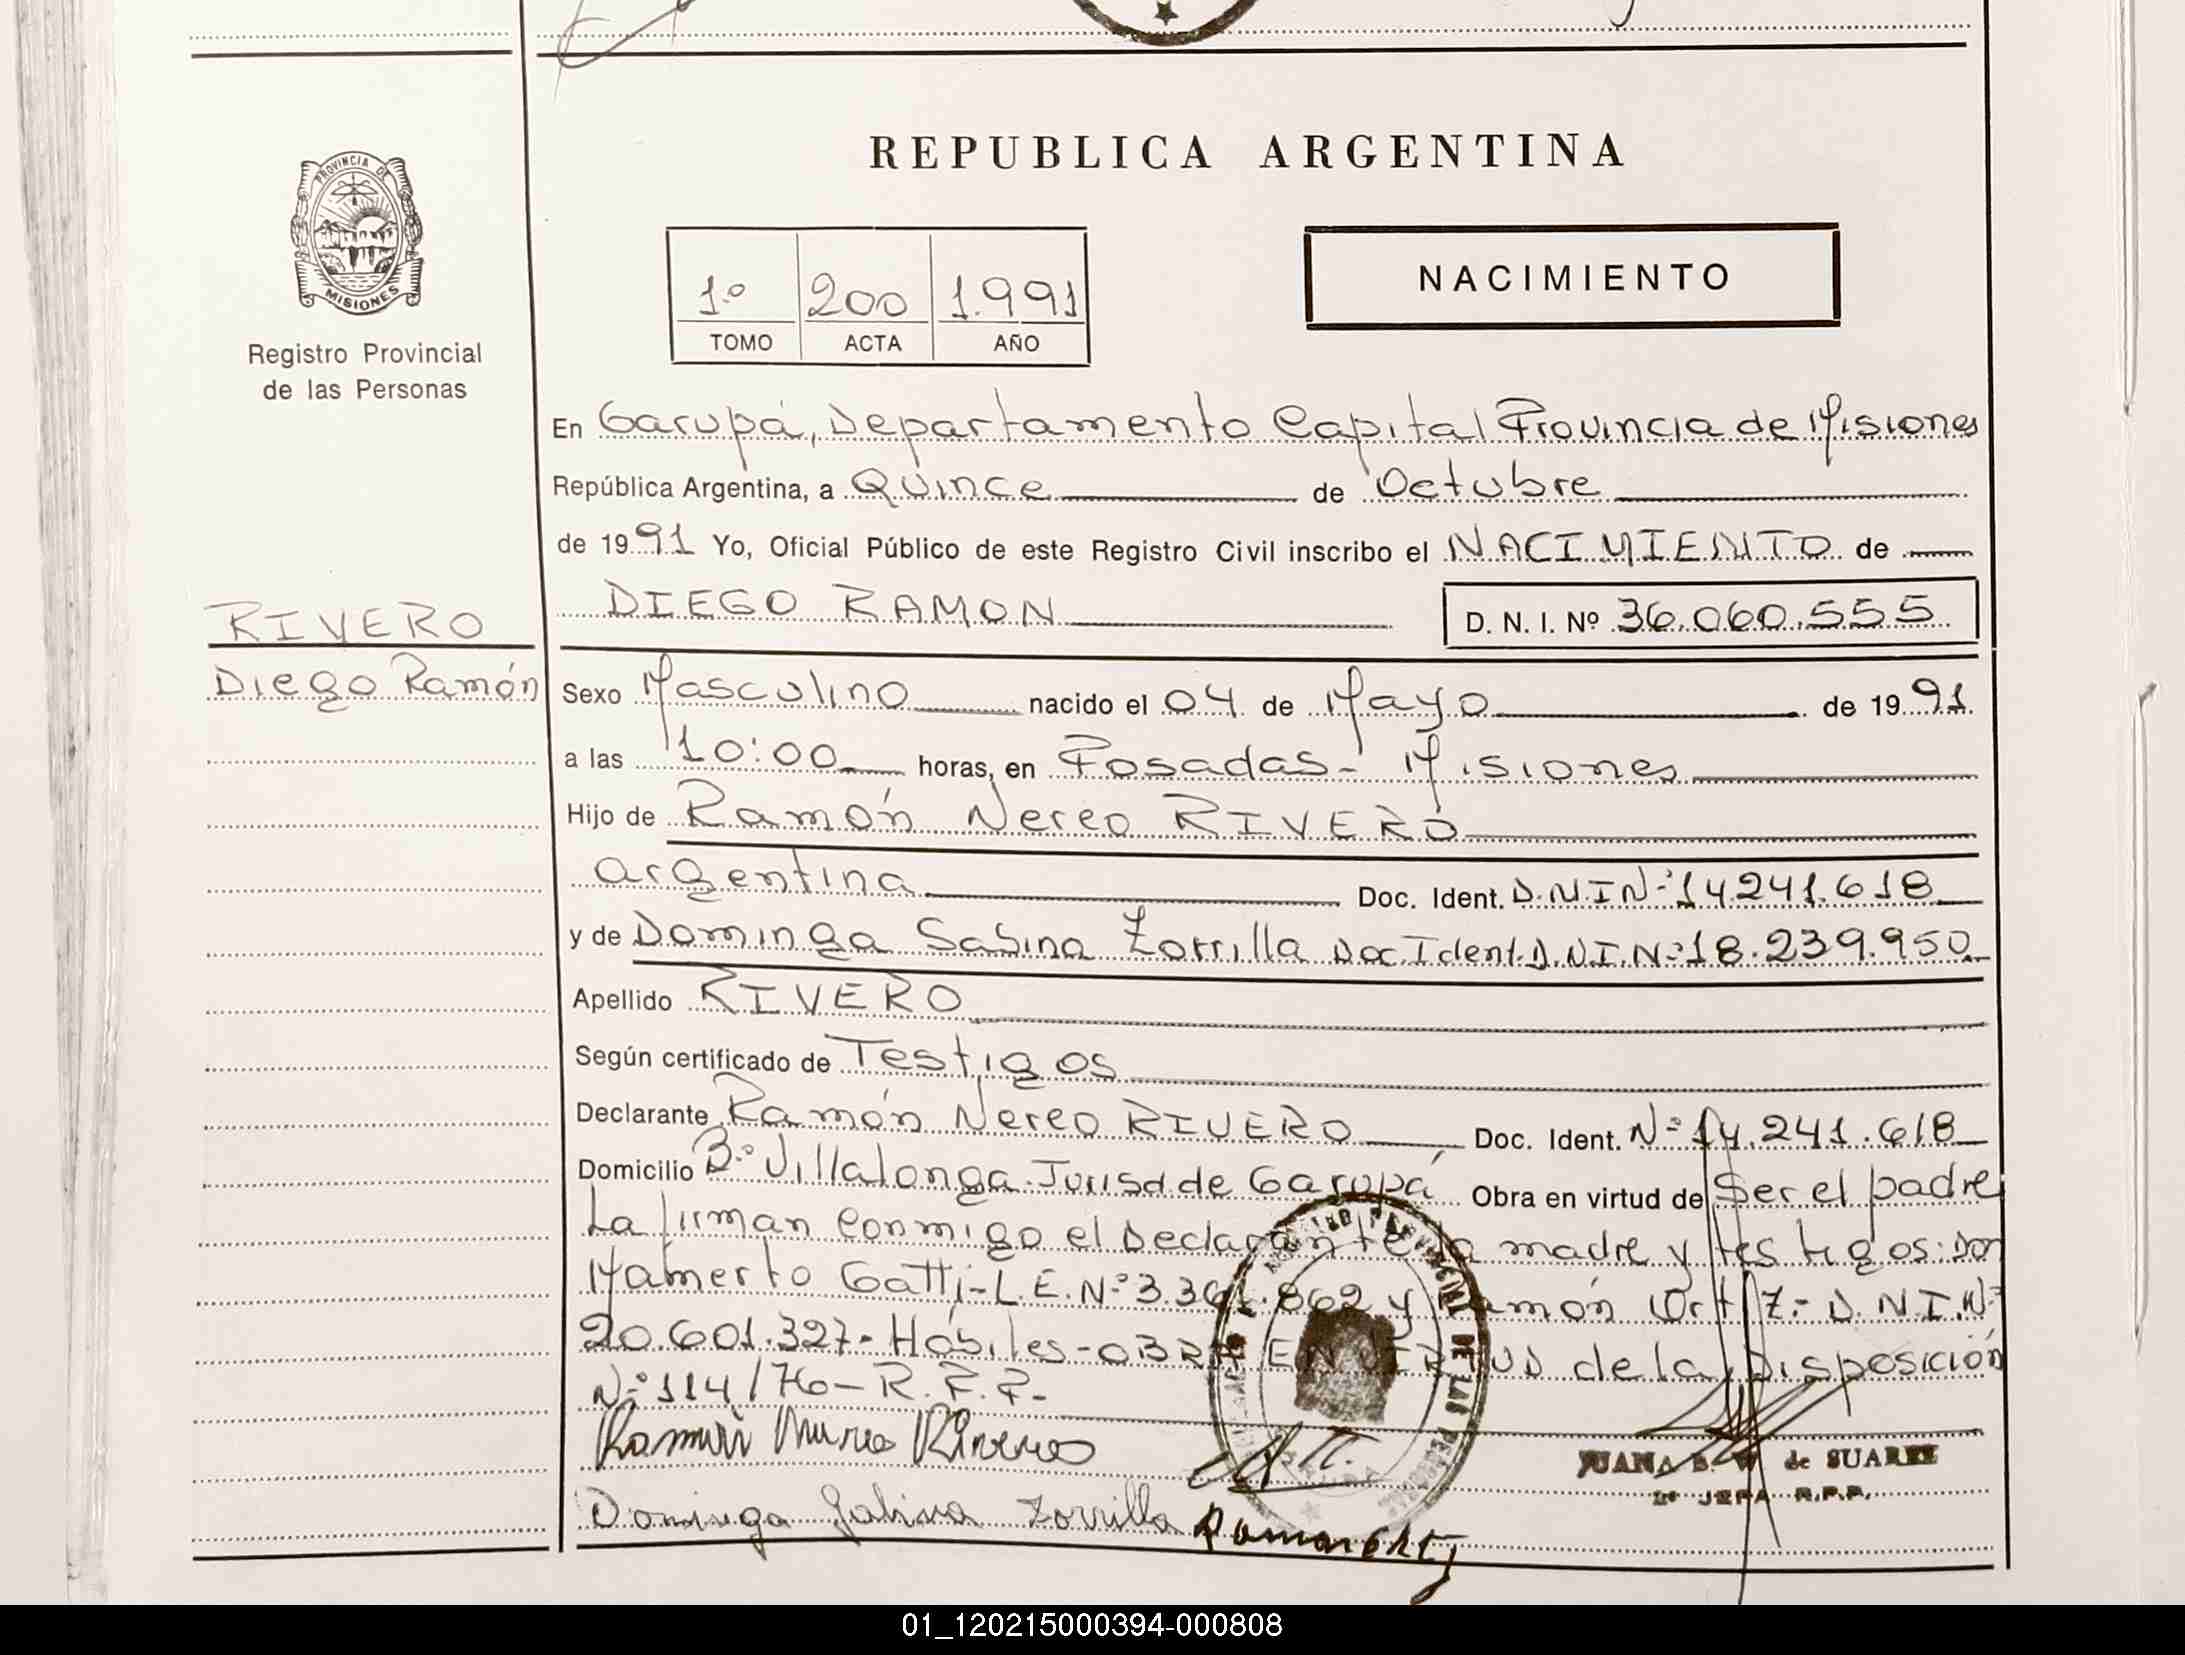 REPUBLICA ARGENTINA
PROVINCIA DE
MISIONES
Registro Provincial
de las Personas
1º 200 1.991
TOMO ACTA AÑO
NACIMIENTO
En Garupá, Departamento Capital Provincia de Misiones
República Argentina, a Quince de Octubre
de 1991 Yo, Oficial Público de este Registro Civil inscribo el NACIMIENTO de
RIVERO
Diego Ramón
DIEGO RAMON D. N. I. Nº 36.060.555
Sexo Masculino nacido el 04 de Mayo de 1991
a las 10:00 horas, en Posadas - Misiones
Hijo de Ramón Nereo RIVERO
argentina Doc. Ident. D.N.I Nº 14241.618
y de Dominga Sabina Zorrilla Doc. Ident. D.N.I. Nº 18.239.950
Apellido RIVERO
Según certificado de Testigos
Declarante Ramón Nereo RIVERO Doc. Ident. Nº 14.241.618
Domicilio Bº Villalonga-Jurisd de Garupá Obra en virtud de Ser el padre
La firman conmigo el Declarante la madre y testigos: Don
Mamerto Gatti - L.E. Nº 3. y Ramón Ortiz.- D.N.I. Nº
20.601.327- Hábiles - OBRA EN VIRTUD de la Disposición
Nº 114/76 - R.P.P.-
REGISTRO PROVINCIAL DE LAS PERSONAS
Dominga Sabina Zorrilla
JUANA de SUAREZ
JEFA R.P.P.
01_120215000394-000808